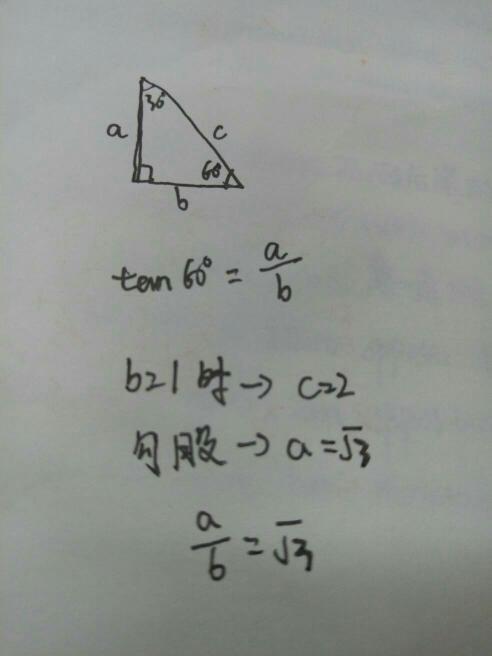 30°
a
c
60°
b
tan 60° = a/b
b=1时→ c=2
勾股→ a=√3
a/b = √3